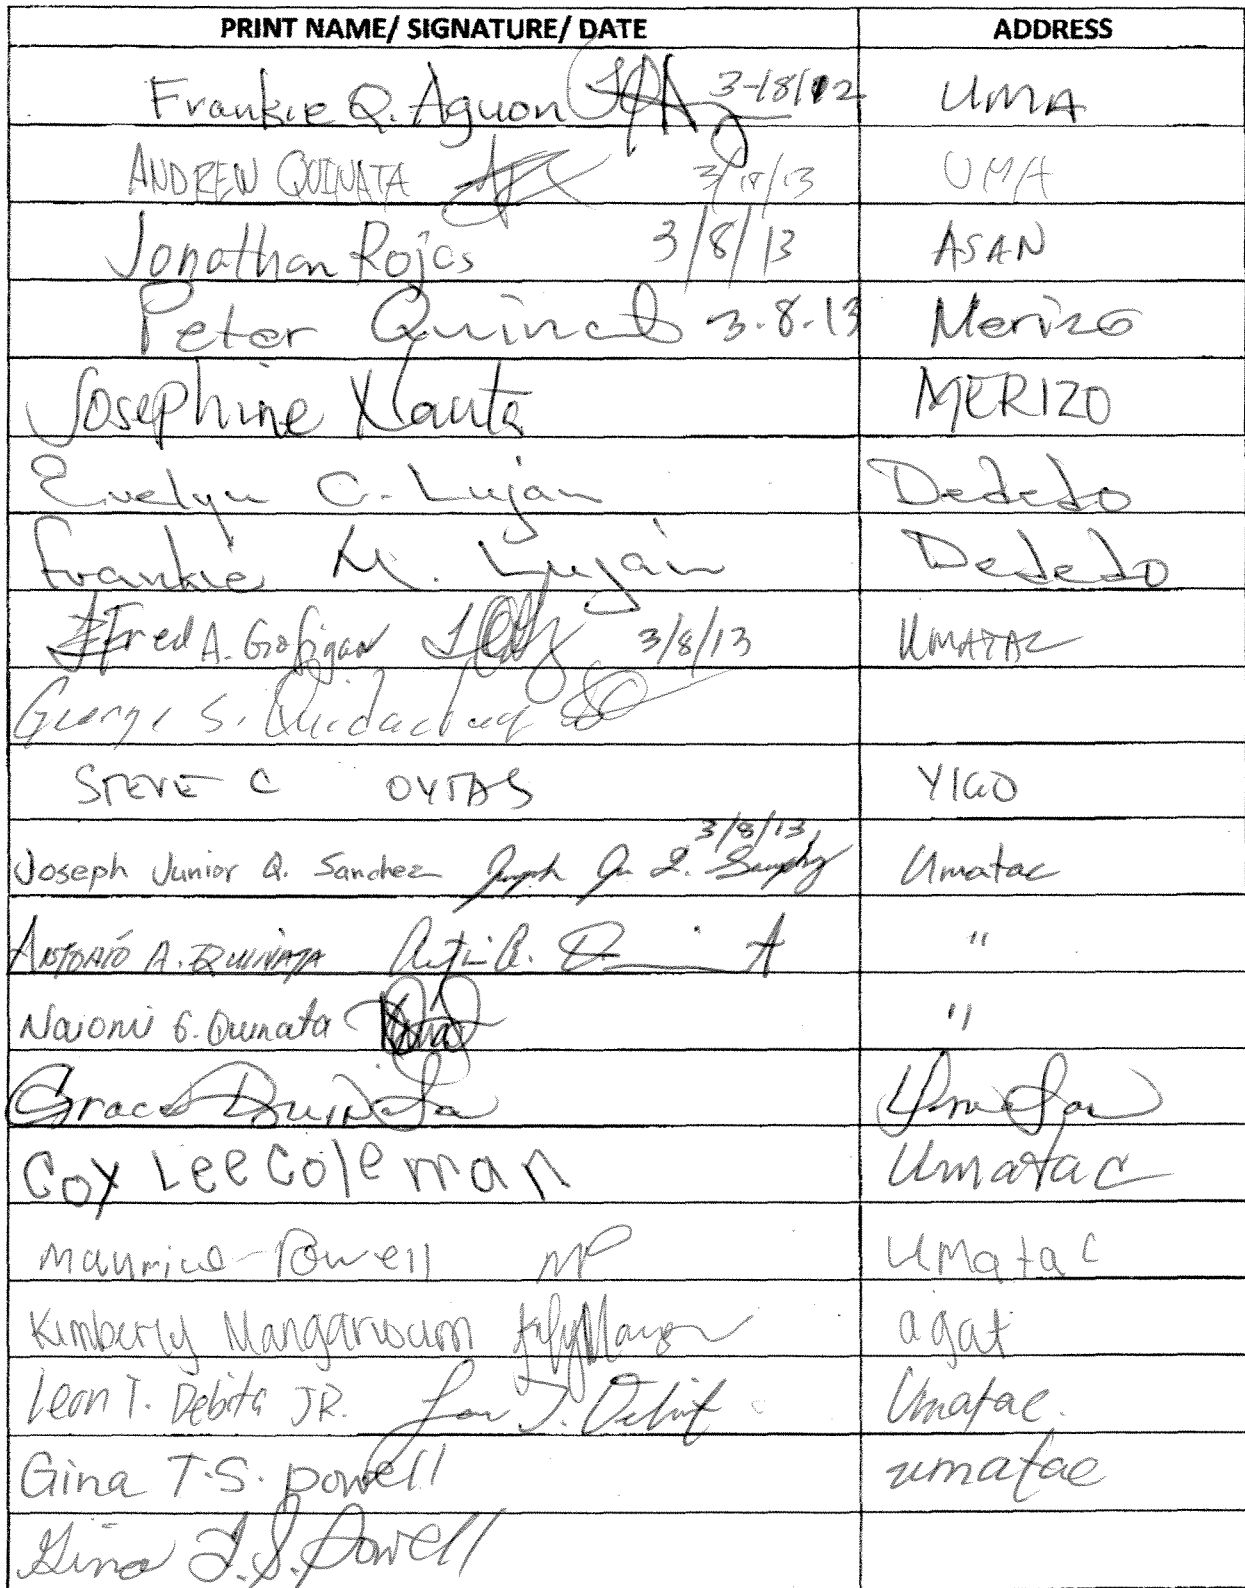 PRINT NAME/ SIGNATURE/ DATE ADDRESS
Frankie Q. Aguon 3-18/12 UMA
ANDREW QUINATA 3/18/13 UMA
Jonathan Rojas 3/8/13 ASAN
Peter 3.8.13 Merizo
Josephine MERIZO
Evelyn C. Lujan Dededo
Frankie M. Lujan Dededo
Fred A. Gofigan 3/8/13 UMATAC
George S.
STEVE C YIGO
3/8/13
Joseph Junior Q. Sanchez Umatac
ANTONIO A. QUINATA "
Naiomi G. Quinata "
Grace Quinata
Coy Lee Coleman Umatac
Maurice Powell MP Umatac
Kimberly agat
Leon T. Debita JR. Umatac.
Gina T.S. powell umatac
Gina T.S. Powell